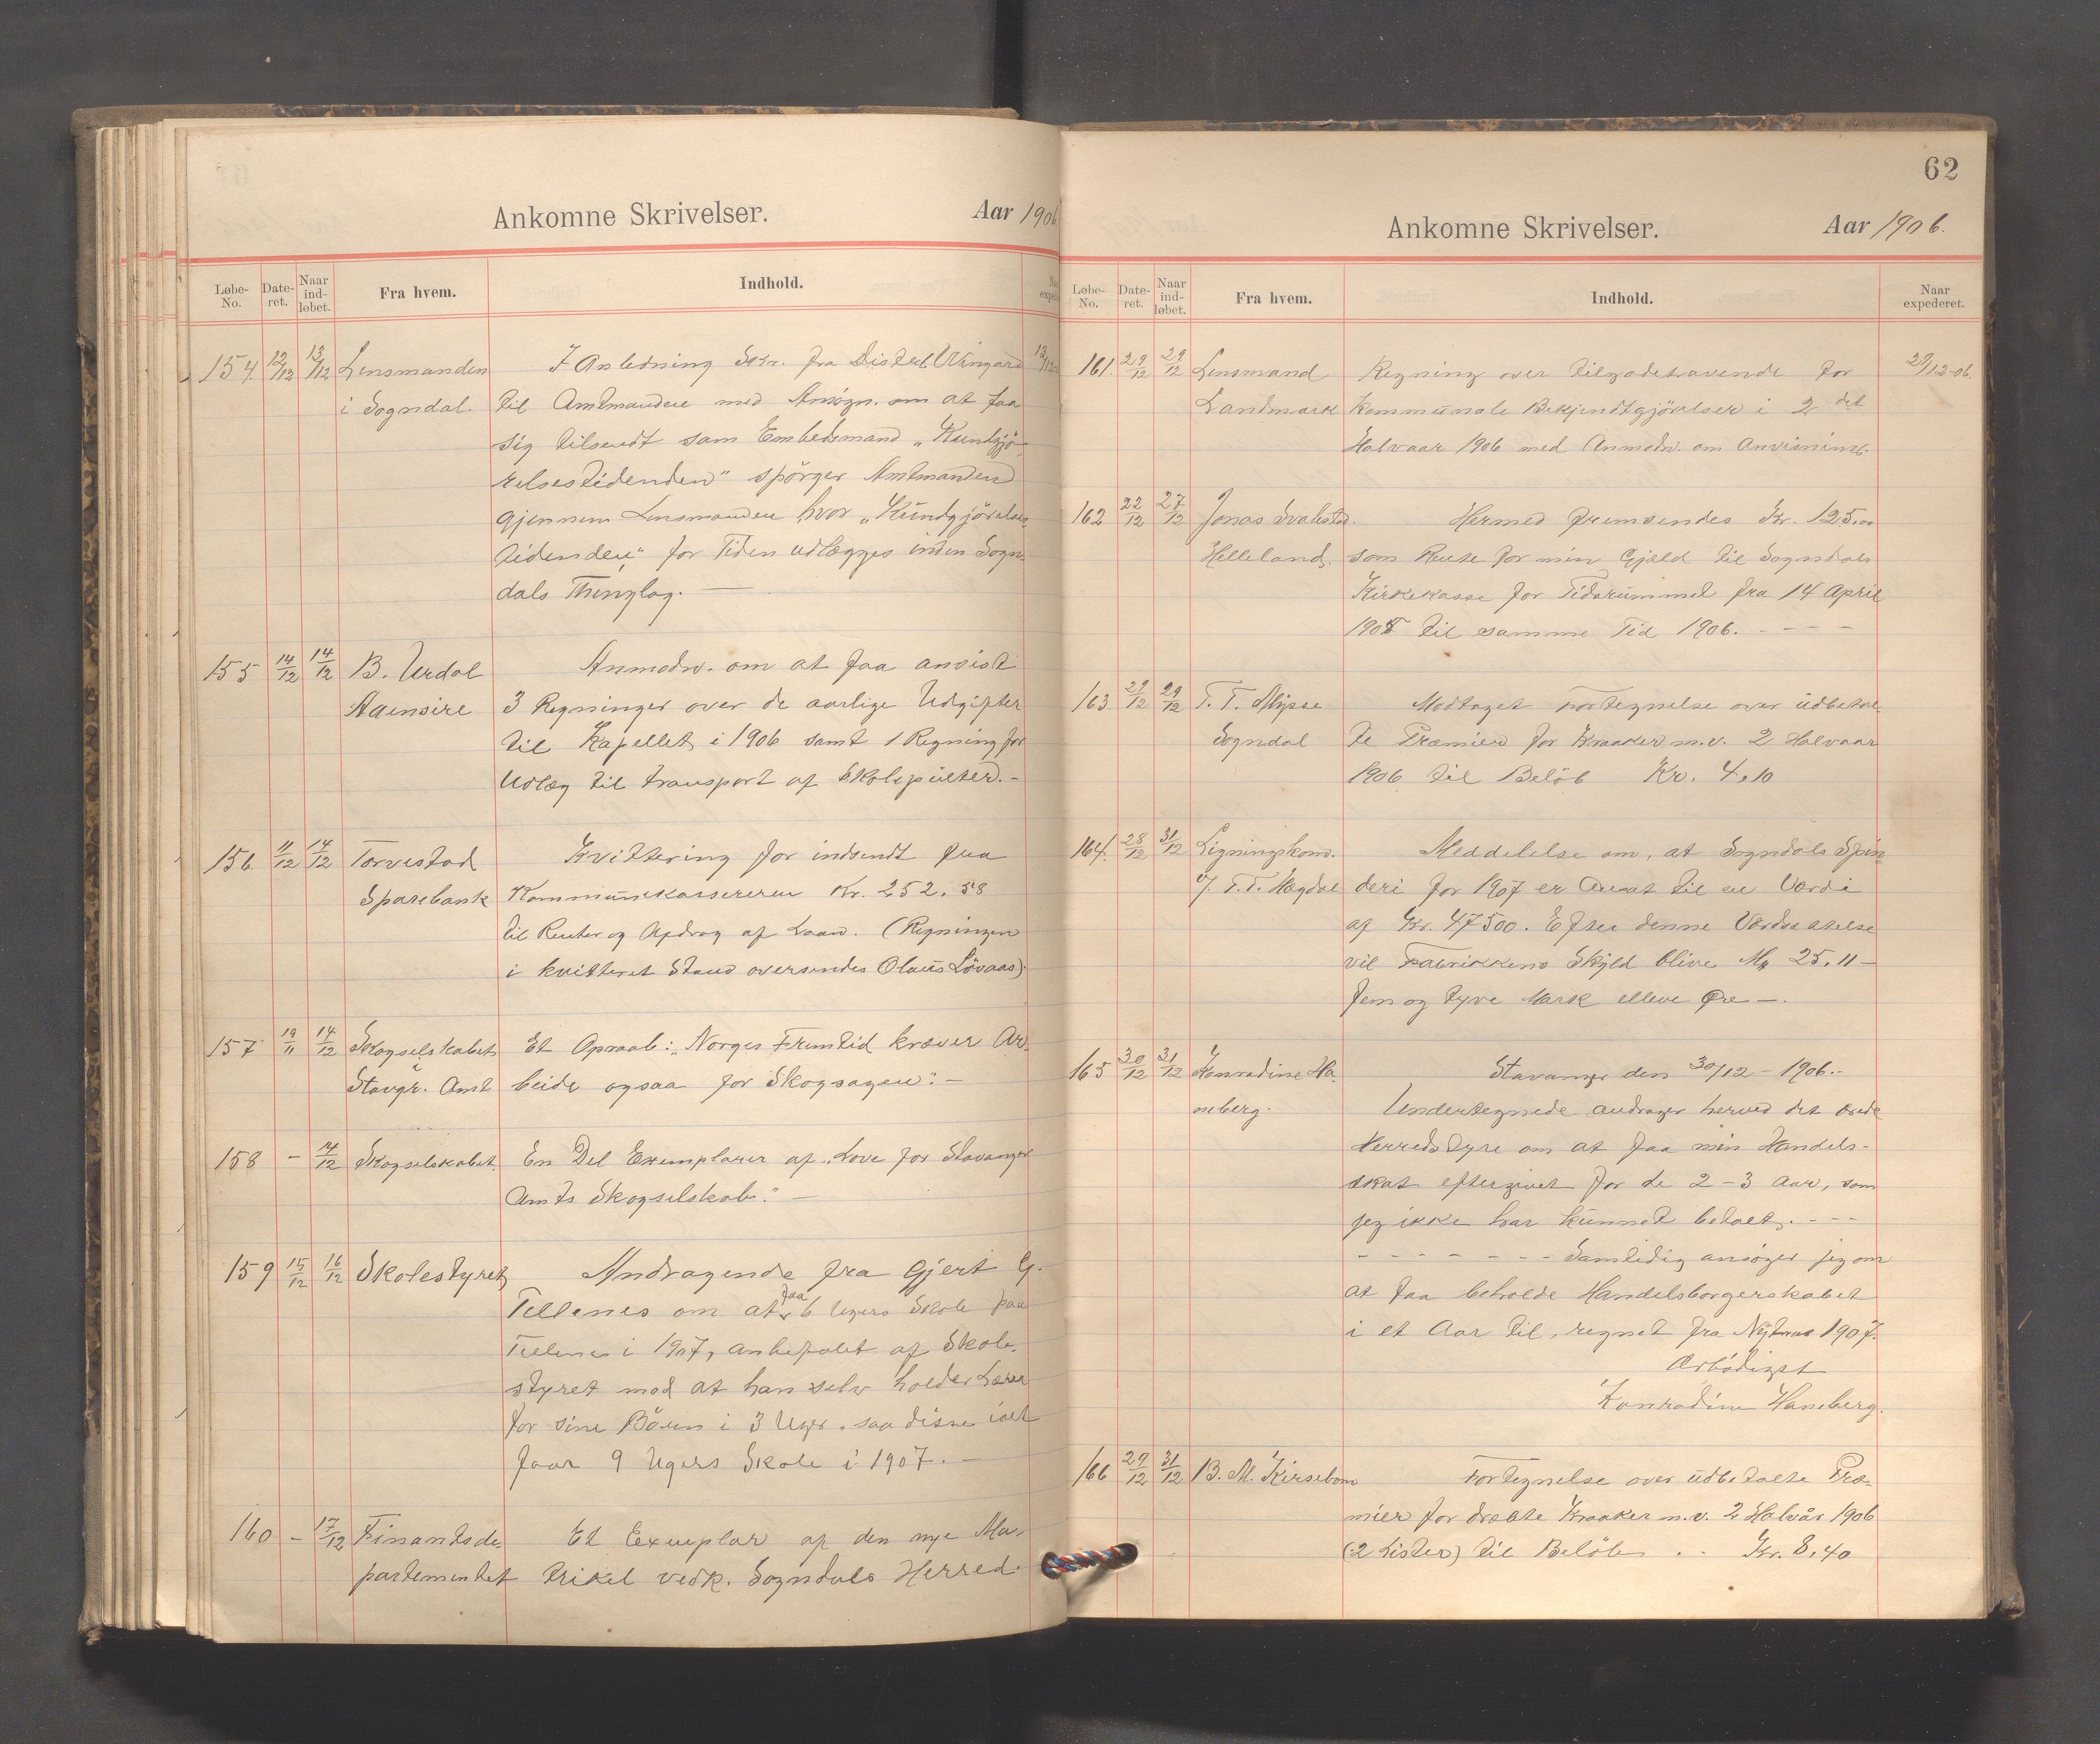 Ankomne Skrivelser. Aar 1906
Løbe-No. Date-ret. Naar ind-løbet. Fra hvem. Indhold.
154. 12/12 13/12 Lensmanden I Anledning Skr. fra
i Sogndal. til Amtmanden med Ansøgn. om at faa
sig tilsendt som Embedsmand „Kundgjö-
relsestidenden" spörger Amtmanden
gjennem Lensmanden hvor „Kundgjörelses
tidenden" for Tiden udlægges inden Sogn-
dals Thinglag. —
155 14/12 14/12 B. Urdal Anmodn. om at faa anvist
Aaensire 3 Regninger over de aarlige Udgifter
til Kapellet i 1906 samt 1 Regning for
Udlæg til transport af Skolepulter. -
156. 11/12 14/12 Torvestad Kvittering for indsendt fra
Sparebank Kommunekassereren Kr. 252.58
til Renter og Afdrag af Laan. (Regningen
i kvitteret Stand oversendes Olaus Lövaas).
157 19/11 14/12 Skogselskabet Et Opraab: „Norges Fremtid kræver Ar-
Stavgr. Amt beide ogsaa for Skogsagen". -
158 - 14/12 Skogselskabet. En Del Exemplarer af „Love for Stavanger
Amts Skogselskab." —
159 15/12 16/12 Skolestyret Andragende fra Gjert G.
Tellenes om at faa 6 Ugers Skole paa
Tellenes i 1907, anbefalet af Skole-
styret mod at han selv holder Lærer
for sine Börn i 3 Uger, saa disse ialt
faar 9 Ugers Skole i 1907. -
160 - 17/12 Finantsde- Et Exemplar af den nye Ma-
partementet trikel vedk. Sogndals Herred.
62
Ankomne Skrivelser. Aar 1906.
Løbe-No. Date-ret. Naar ind-løbet. Fra hvem. Indhold. Naar expederet.
161. 29/12 29/12 Lensmand Regning over tilgodehavende for 29/12-06.
Landmark Kommunale Bekjendtgjörelser i 2det
Halvaar 1906 med Anmodn. om Anvisning.
162 22/12 27/12 Jonas Svalestad. Hermed fremsendes Kr. 125.00
Helleland. som Rente for min Gjeld til Sogndals
Kirkekasse for Tidsrummet fra 14 April
1905 til samme Tid 1906. - - - -
163. 29/12 29/12 T. T. Mysse Modtaget Fortegnelse over udbetal-
Sogndal te Præmier for Kraaker m.v. 2 Halvaar
1906 til Belöb Kr. 4,10
164. 28/12 31/12 Ligningskom. Meddelelse om, at Sogndals Spin-
v/ T. T. Mægdal deri for 1907 er Ansat til en Værdi
af Kr. 47500. Efter denne Værdsættelse
vil Fabrikkens Skyld blive Mk 25.11 -
fem og tyve Mark elleve Øre —.
165 30/12 31/12 Konradine Ha- Stavanger den 30/12 - 1906. -
neberg. Undertegnede andrager herved det ærede
Herredstyre om at faa min Handels-
skat eftergivet for de 2 - 3 Aar, som
jeg ikke har kunnet betalt. - - -
- - - - - - - Samtidig ansöger jeg om
at faa beholde Handelsborgerskabet
i et Aar til, regnet fra Nytaar 1907.
Ærbödigst
Konradine Haneberg.
166 29/12 31/12 B. M. Kirsebom Fortegnelse over udbetalte Præ-
mier for dræbte Kraaker m.v. 2 Halvår 1906
(2 Lister) til Belöb . . Kr. 8,40